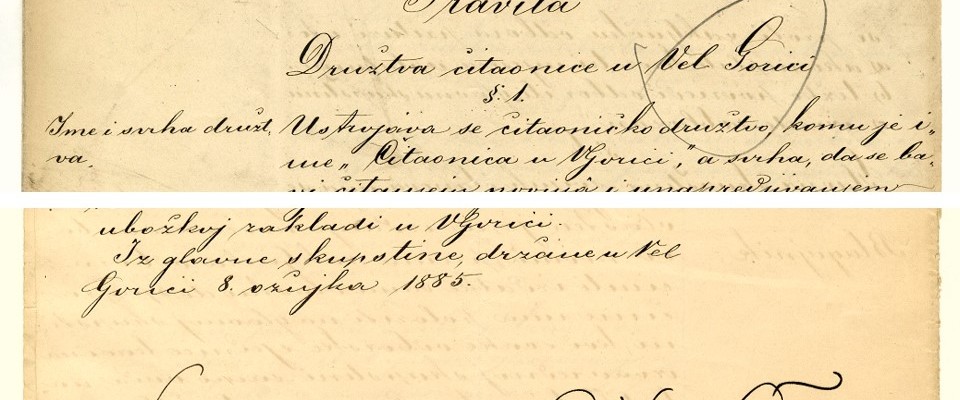 Pravila
Družtva čitaonice u Vel Gorici
§. 1.
Ime i svrha družt, Ustrojava se čitaoničko družtvo, komu je i„
va. me „Čitaonica u VGorici", a svrha, da se ba„
vi čitanjem novinâ i unapredjivanjem
ubožkoj zakladi u VGorici.
Iz glavne skupštine, držane u Vel
Gorici 8. ožujka 1885.